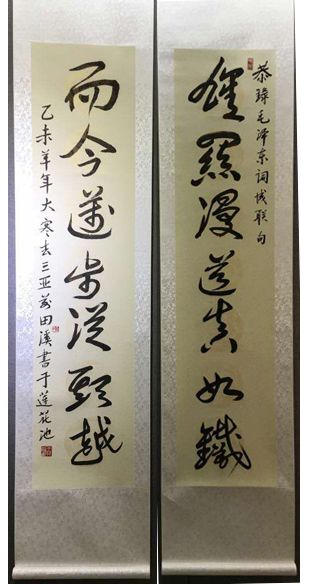 恭录毛泽东词成联句
雄關漫道真如鐵
而今邁步從頭越
乙未羊年大寒去三亚前田溪書于蓮花池